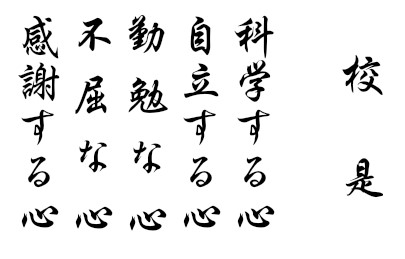 校是
科学する心
自立する心
勤勉な心
不屈な心
感謝する心